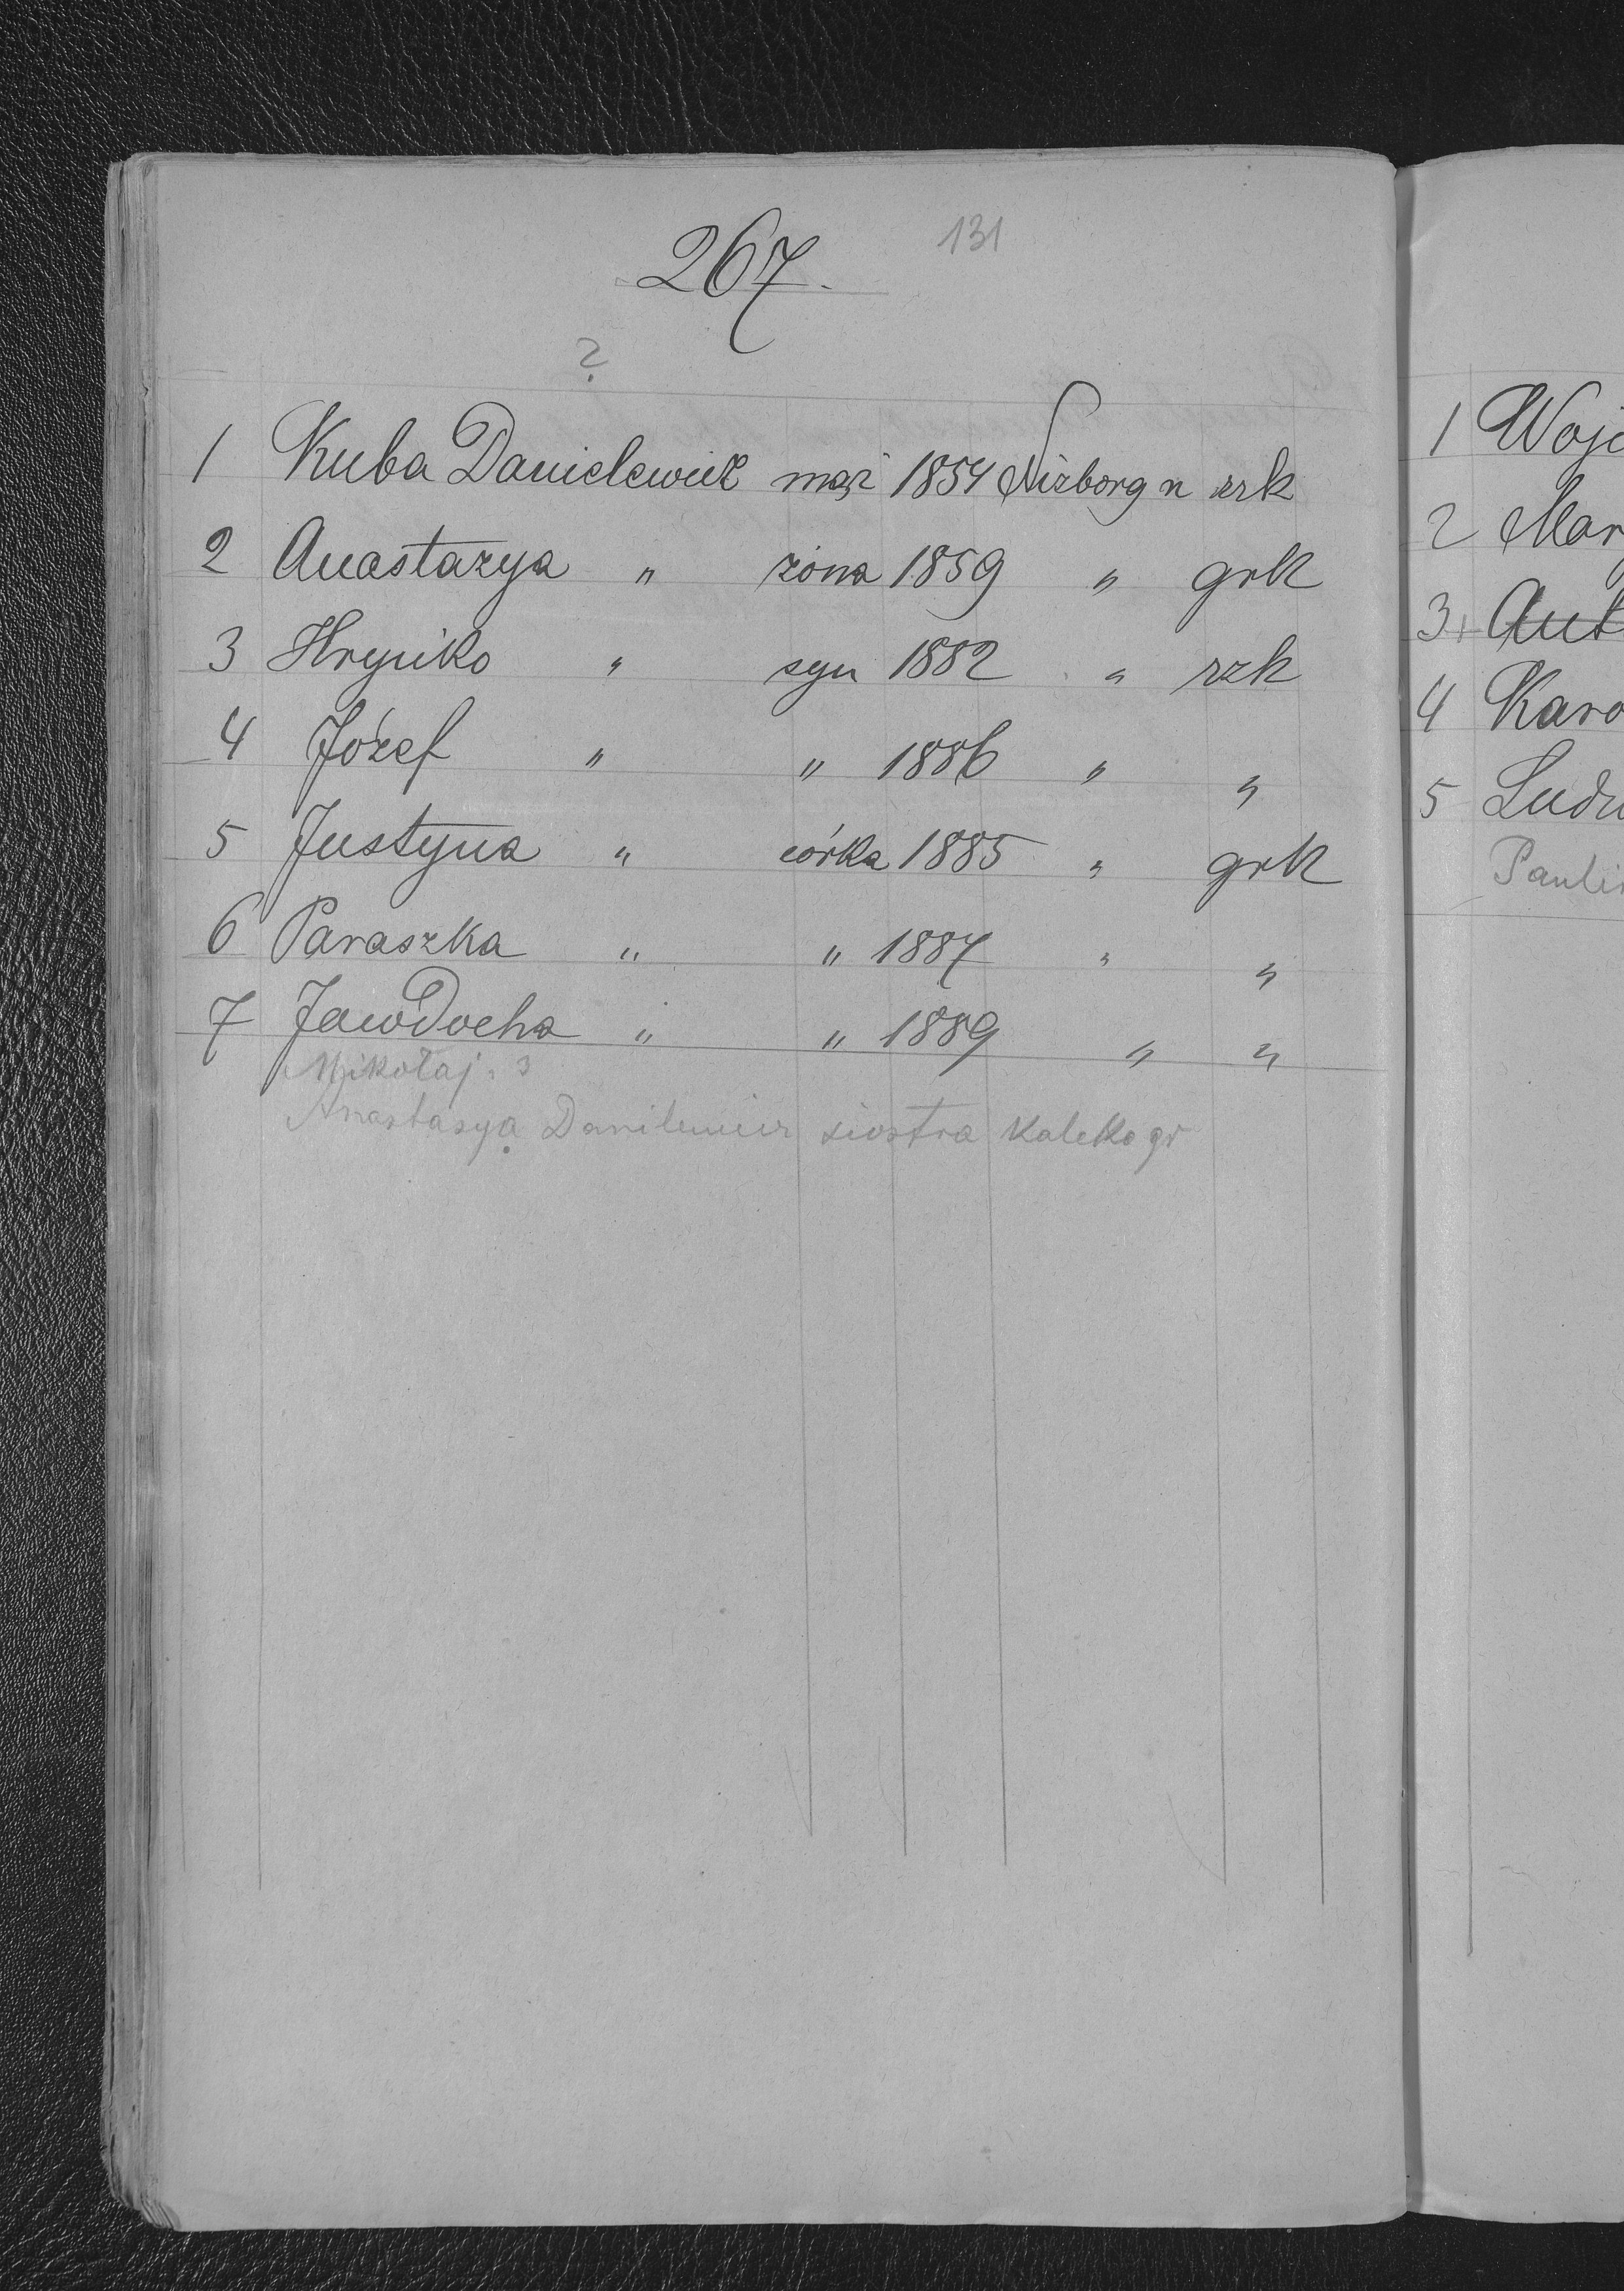 267.
131
?
1 Kuba Danielewicz mąż 1854 Niżborg n rzk
2 Anastazya " żona 1859 " grk
3 Hryńko " syn 1882 " rzk
4 Józef " " 1886 " "
5 Justyna " córka 1885 " grk
6 Paraszka " " 1887 " "
7 Jawdocha " " 1889 " "
Mikołaj " 3
Anastasya Danilewicz siostra kaleka gr
1 Woj
2 Mar
3 Ant
4 Karo
5 Ludw
Paulin